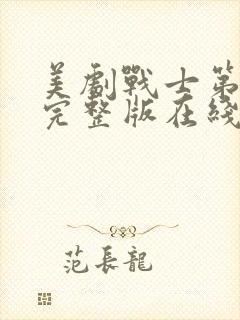 美劇戰士第
完整版在綫
范長龍